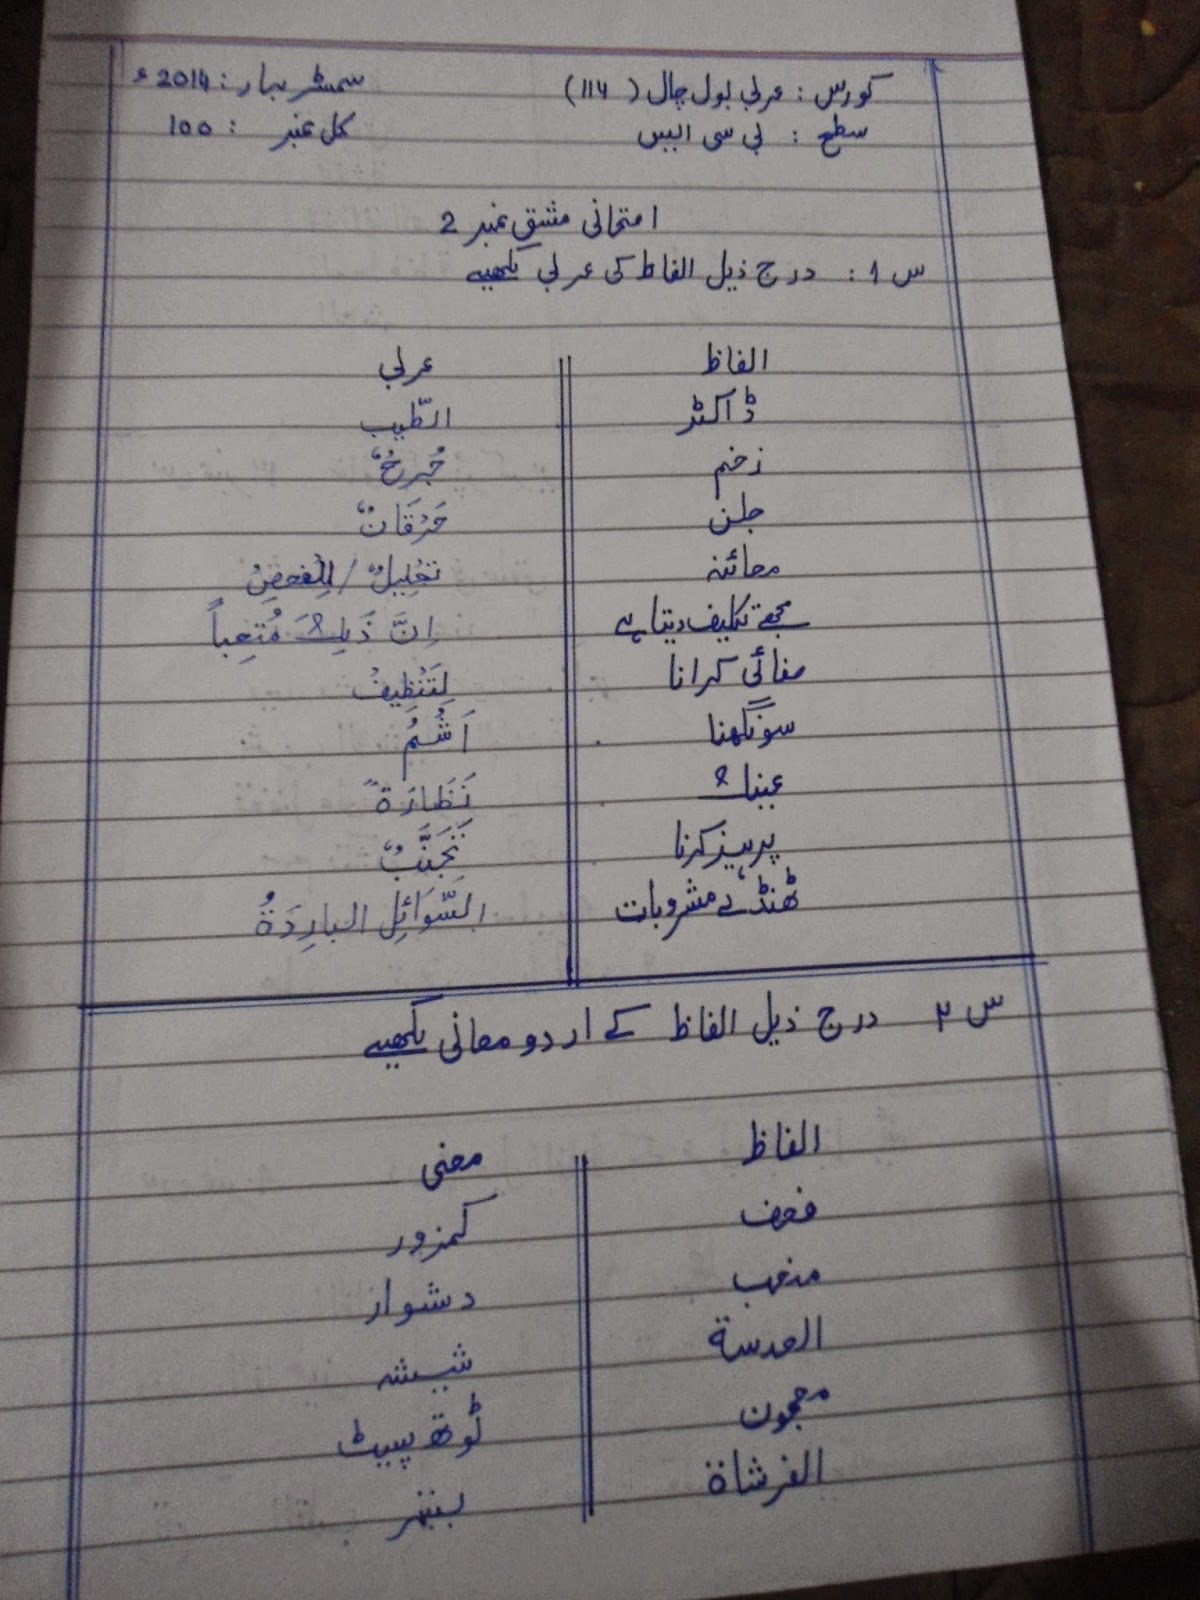 کورس : عربی بول چال ( 114 ) سمسٹر بہار : 2014 ء
سطح : بی سی ایس کل نمبر : 100
امتحانی مشق نمبر 2
س 1 : درج ذیل الفاظ کی عربی لکھیے
الفاظ عربی
ڈاکٹر الطّبیب
زخم جُرحُ
جلن حَرْقَانٌ
معائنہ تحلِیلٌ / لِلْفحصِ
مجھے تکلیف دیتا ہے اِنَّ ذَلِکَ مُتعِباً
صفائی کرانا لِتَنْظِیفِ
سونگھنا اَشُمُّ
عینک نَظَّارَةٌ
پرہیز کرنا تَجَنَّبُ
ٹھنڈے مشروبات السَّوَائِلِ البارِدَةُ
س ۲ درج ذیل الفاظ کے اردو معانی لکھیے
الفاظ معنی
ضعف کمزور
متعب دشوار
العدسة شیشہ
معجون ٹوتھ پیسٹ
الفرشاة